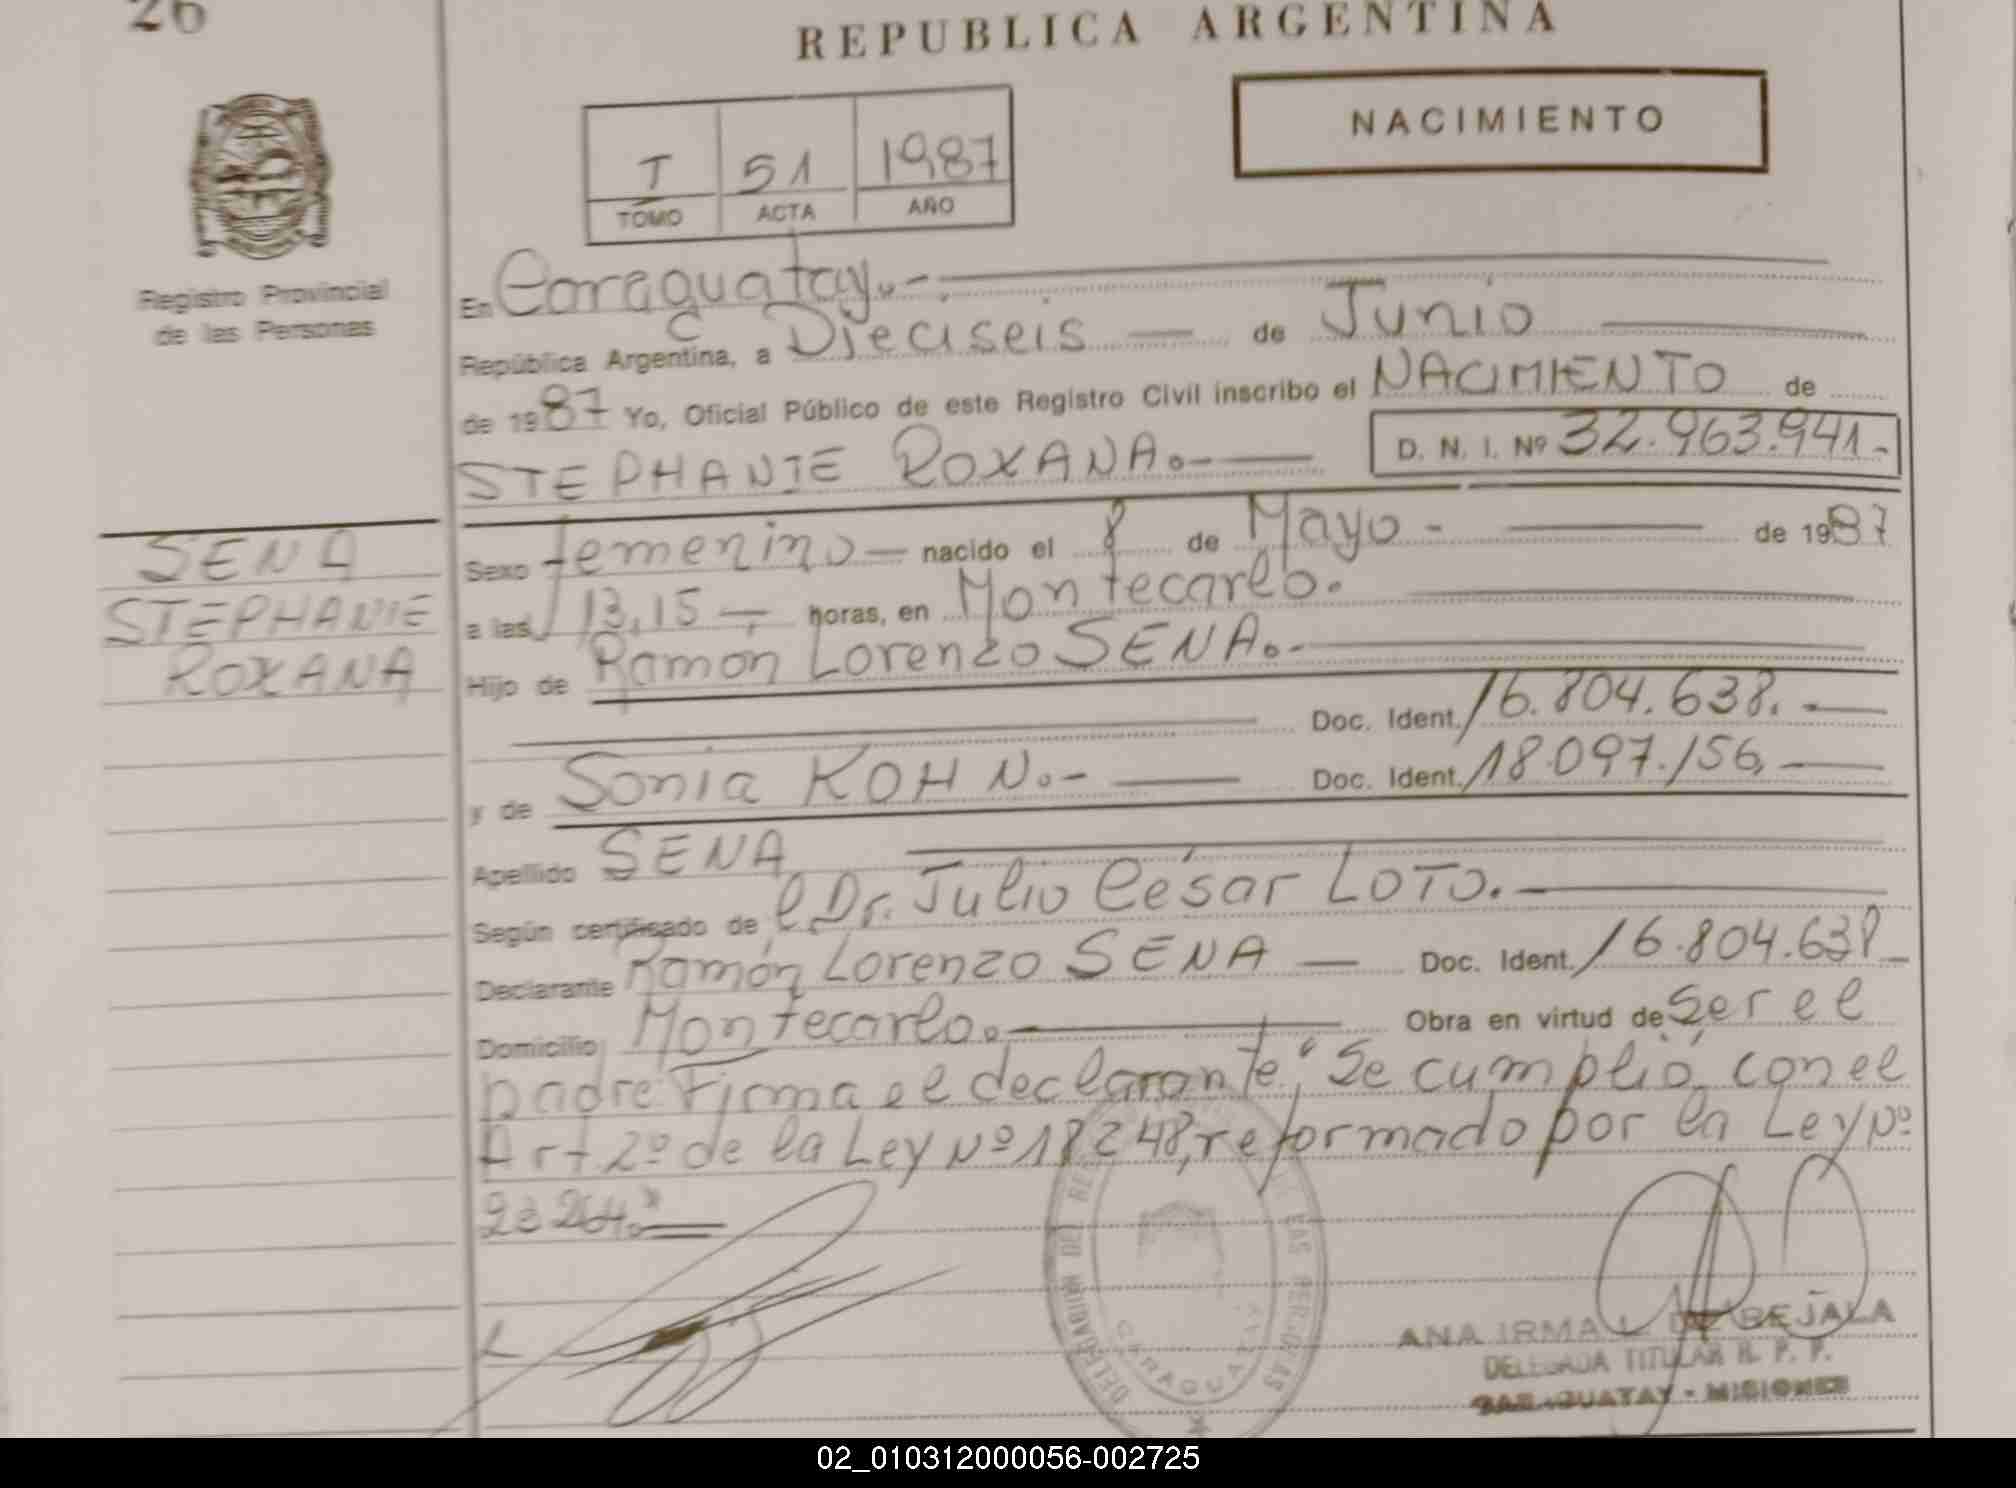 26
REPUBLICA ARGENTINA
NACIMIENTO
T 51 1987
TOMO ACTA AÑO
Registro Provincial
de las Personas
En Caraguatay.-
República Argentina, a Dieciseis de Junio
de 1987 Yo, Oficial Público de este Registro Civil inscribo el NACIMIENTO de
STEPHANIE ROXANA.- D. N. I. Nº 32.963.941.-
SENA
STEPHANIE
ROXANA
Sexo femenino nacido el 8 de Mayo - de 1987
a las 13,15 horas, en Montecarlo.
Hijo de Ramón Lorenzo SENA.-
Doc. Ident. 16.804.638.
y de Sonia KOHN.- Doc. Ident. 18.097.156,
Apellido SENA
Según certificado de el Dr. Julio César LOTO.
Declarante Ramón Lorenzo SENA Doc. Ident. 16.804.638
Domicilio Montecarlo. Obra en virtud de ser el
padre. Firma el declarante "Se cumplió con el
Art. 2º de la Ley Nº 18248, reformado por la Ley Nº
23264."
DELEGACION DEL REGISTRO DE LAS PERSONAS
CARAGUATAY
ANA IRMA L. DE BEJALA
DELEGADA TITULAR R. P. P.
CARAGUATAY - MISIONES
02_010312000056-002725